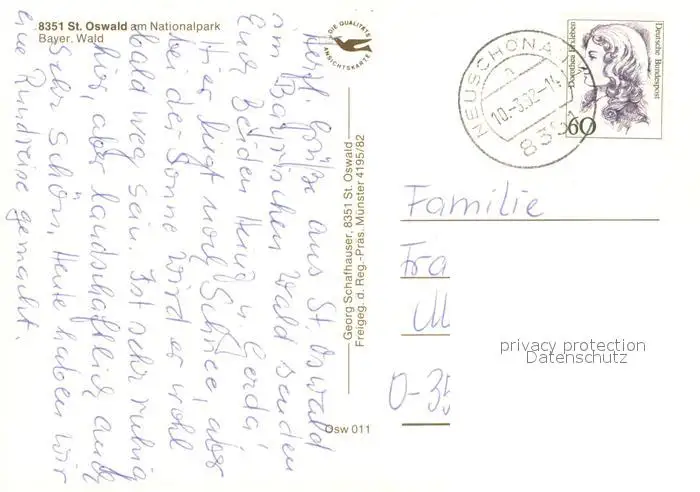 8351 St. Oswald am Nationalpark
Bayer. Wald
DIE QUALITÄTS
ANSICHTSKARTE
Herzl. Grüße aus St. Oswald
im Bayrischen Wald senden
Euch beiden Heinz u. Gerda!
Hier liegt noch Schnee, aber
bei der Sonne wird er wohl
bald weg sein. Ist sehr ruhig
hier, aber landschaftlich auch
sehr schön. Heute haben wir
eine Rundreise gemacht.
Georg Schafhauser, 8351 St. Oswald
Freigeg. d. Reg.-Präs. Münster 4195/82
Osw 011
NEUSCHÖNAU
10.-3.92-14
Deutsche Bundespost
60
Familie
Fra
M
O-35
privacy protection
Datenschutz